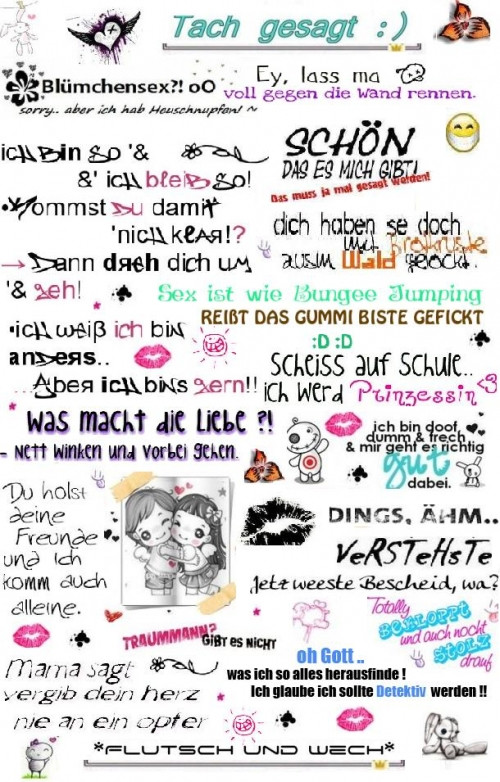 Tach gesagt :)
Blümchensex?! oO
sorry.. aber ich hab Heuschnupfen! ~
Ey, lass ma
voll gegen die Wand rennen.
ich bin so '&
&' ich bleib so!
Kommst du damit
'nich klar!?
→ Dann dreh dich um
'& geh!
SCHÖN
DAS ES MICH GIBT!
Das muss ja mal gesagt werden!
dich haben se doch
mit Brotkruste
aus'm Wald gelockt.
Sex ist wie Bungee Jumping
REIßT DAS GUMMI BISTE GEFICKT
•ich weiß ich bin
anders..
...Aber ich bins gern!!
:D :D
Scheiss auf Schule..
ich werd Prinzessin <3
Was macht die Liebe ?!
- Nett winken und vorbei gehen.
ich bin doof,
dumm & frech
& mir geht es richtig
gut
dabei.
Du holst
deine
Freunde
und ich
komm auch
alleine.
DINGS, ÄHM..
VeRSTeHsTe
Jetz weeste Bescheid, wa?
Totally
BEKLOPPT
und auch noch
STOLZ
drauf
TRAUMMANN?
GIBT ES NICHT
oh Gott ..
was ich so alles herausfinde !
Ich glaube ich sollte Detektiv werden !!
Mama sagt
vergib dein herz
nie an ein opfer
*FLUTSCH UND WECH*